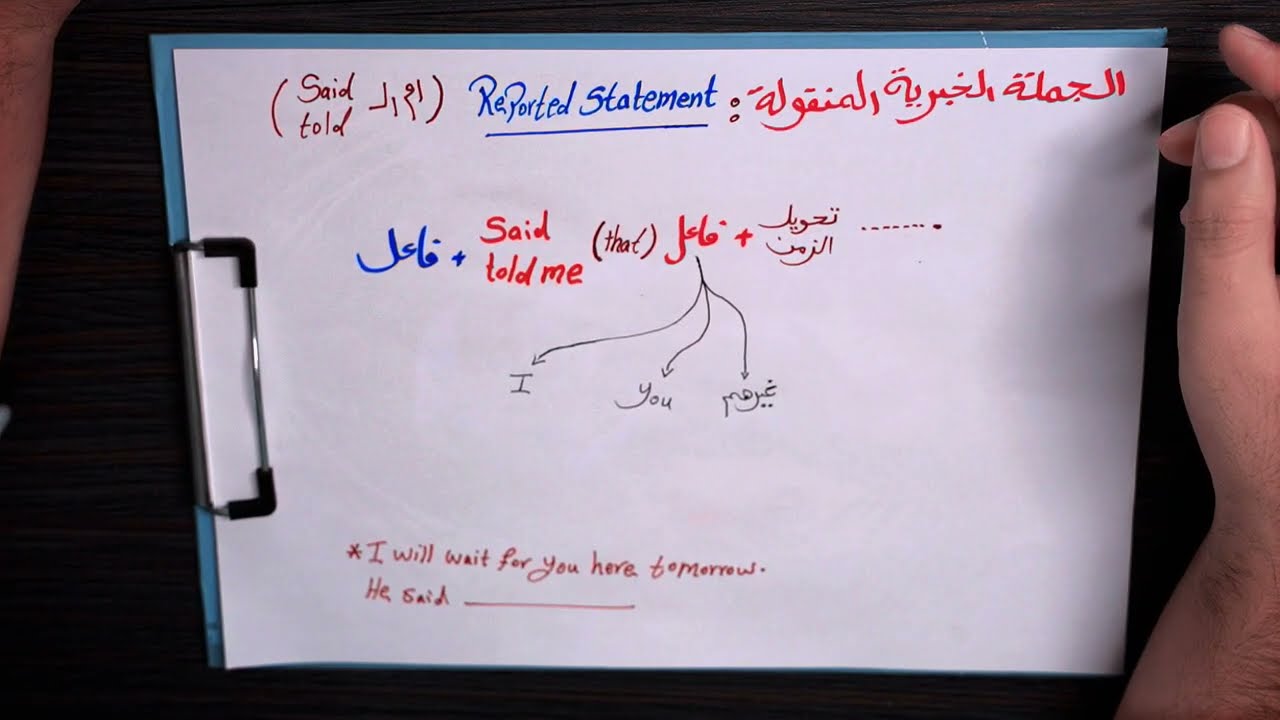 الجملة الخبرية المنقولة : Reported Statement ( ام الـ Said told )
فاعل + Said told me (that) فاعل + تحويل الزمن ........
I You غيرهم
* I will wait for you here tomorrow.
He said ____________